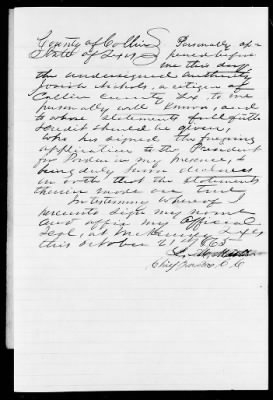 County of Collin } Personally ap-
State of Texas } peared before
me this day
the undersigned authority
Josiah Nichols, a citizen of
Collin County Texas, to me
personally well known, and
to whose statements full faith
& credit should be given,
who has signed the foregoing
application to the President
for Pardon in my presence, &
being duly sworn declares
on oath that the statements
therein made are true
In testimony whereof I
presents sign my name
and affix my Official
Seal, at McKinney Texas
this October 21st 1865
Chief Justice C. C.